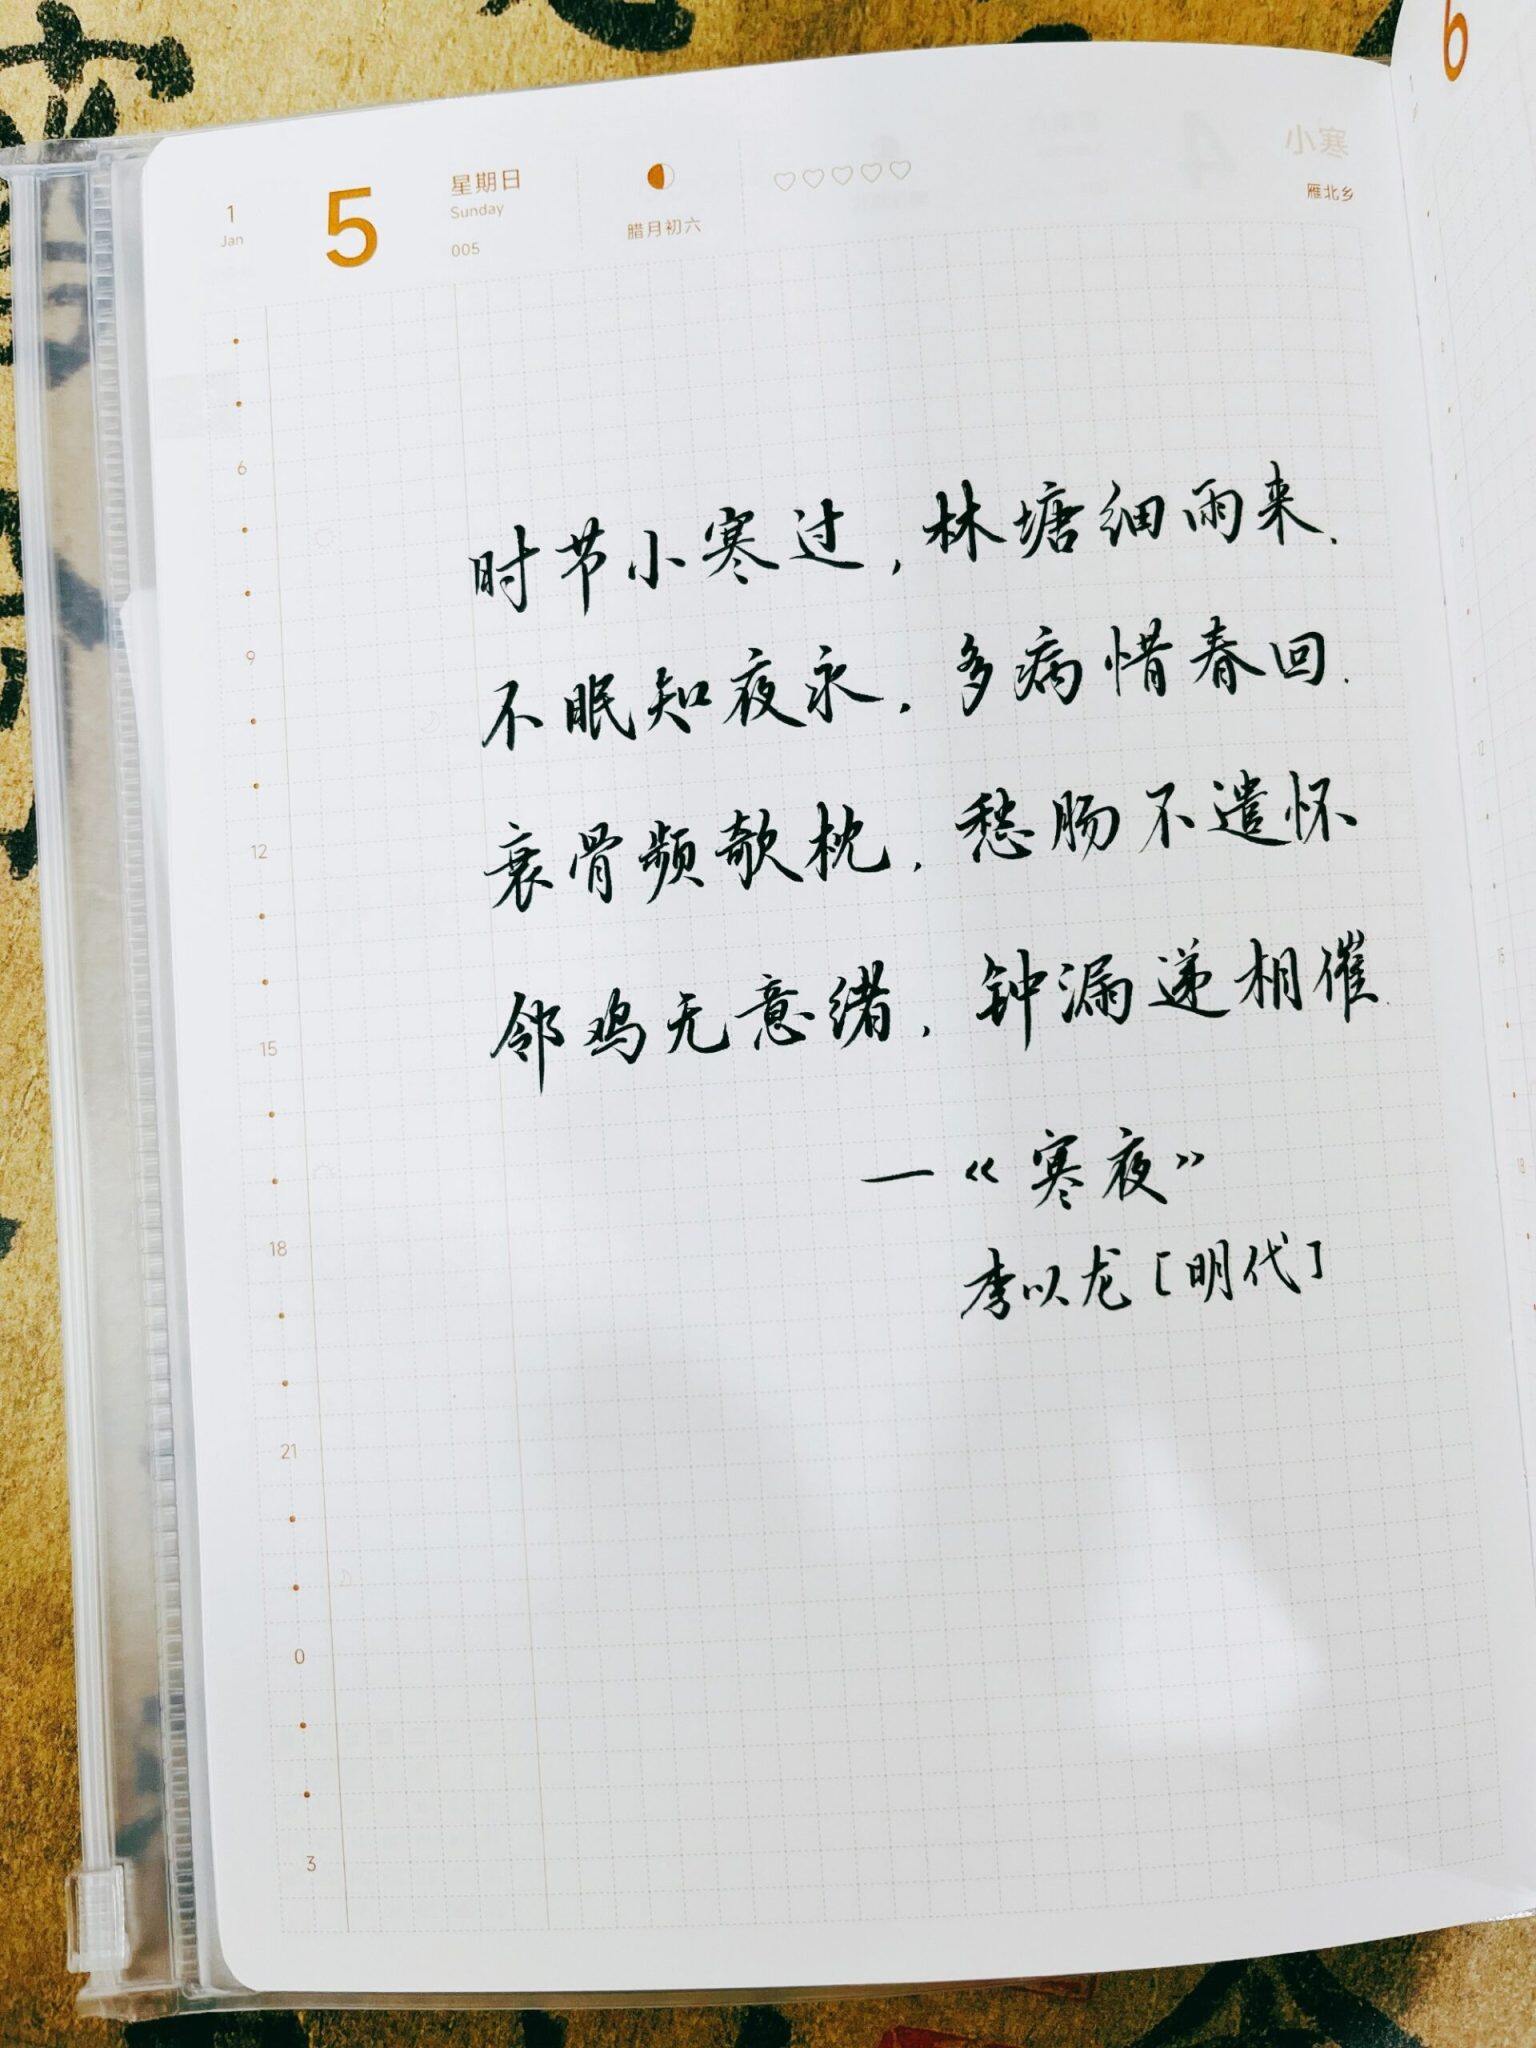 1
Jan
5
星期日
Sunday
005
腊月初六
小寒
雁北乡
6
时节小寒过，林塘细雨来.
不眠知夜永，多病惜春回.
衰骨频欹枕，愁肠不遣怀
邻鸡无意绪，钟漏递相催.
—《寒夜》
李以龙[明代]
6
9
12
15
18
21
0
3
12
15
18